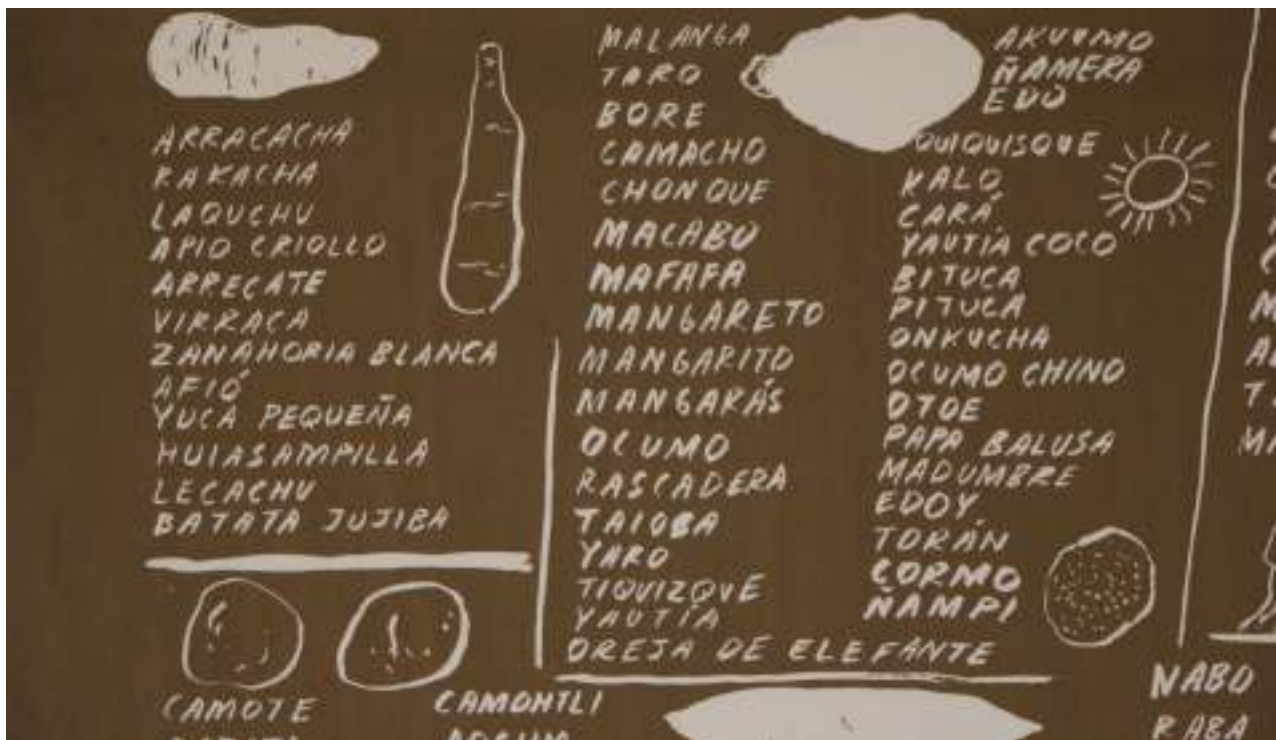 ARRACACHA
RAKACHA
LAQUCHU
APIO CRIOLLO
ARRECATE
VIRRACA
ZANAHORIA BLANCA
AFIÓ
YUCA PEQUEÑA
HUIASAMPILLA
LECACHU
BATATA JUJIBA
CAMOTE
CAMOHTLI
MALANGA
TARO
BORE
CAMACHO
CHONQUE
MACABU
MAFAFA
MANGARETO
MANGARITO
MANGARÁS
OCUMO
RASCADERA
TAIOBA
YARO
TIQUIZQUE
YAUTÍA
OREJA DE ELEFANTE
ÑAMERA
EDO
QUIQUISQUE
KALO
CARÁ
YAUTÍA COCO
BITUCA
PITUCA
ONKUCHA
OCUMO CHINO
OTOE
PAPA BALUSA
MADUMBRE
EDOY
TORÁN
CORMO
ÑAMPI
NABO
RABA